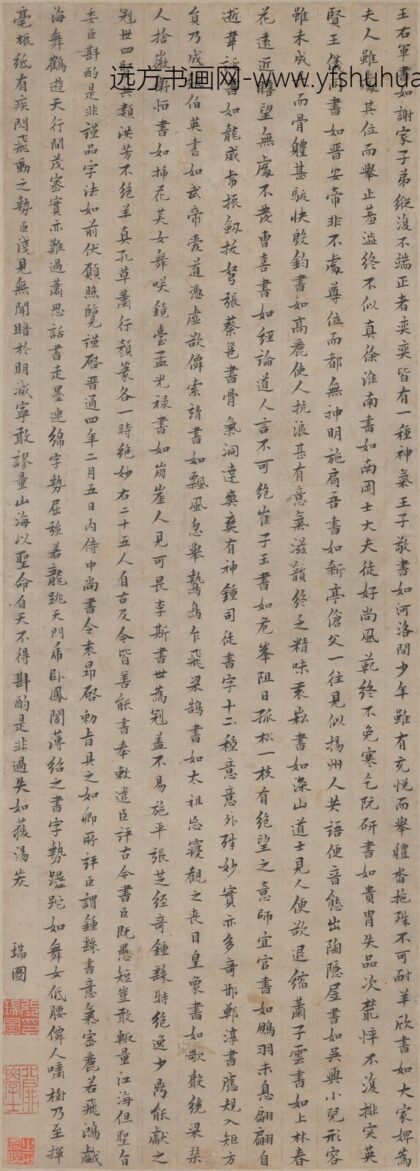 王右軍書如謝家子弟縱復不端正者奕奕皆有一種神氣王子敬書如河洛間少年雖有充悦而舉體沓拖殊不可耐羊欣書如大家婢為
夫人雖處其位而舉止羞澁終不似真徐淮南書如南岡士大夫徒好尚風範終不免寒乞阮研書如貴胄失品次叢悴不復排突英
賢王儀同書如晉安帝非不處尊位而都無神明施肩吾書如新亭傖父一往見似揚州人共語便音態出陶隱居書如吳興小兒形容
雖未成而骨體甚駃快殷鈞書如高麗使人抗浪甚有意氣滋韻終乏精味袁崧書如深山道士見人便欲退縮蕭子雲書如上林春
花遠近瞻望無處不發曹喜書如經論道人言不可絶崔子玉書如危峯阻日孤松一枝有絶望之意師宜官書如鵬羽未息翩翩自
逝韋誕書如龍威虎振劒拔弩張蔡邕書骨氣洞達爽爽有神鍾司徒書字十二種意意外殊妙實亦多奇邯鄲淳書應規入矩方
員乃成張伯英書如武帝愛道憑虛欲僊索靖書如飄風忽舉鷙鳥乍飛梁鵠書如太祖忘寢觀之喪目皇象書如歌聲繞梁琴
人捨徽衛恒書如插花美女舞笑鏡臺孟光祿書如崩崖人見可畏李斯書世為冠蓋不易施平張芝經奇鍾繇特絶逸少鼎能獻之
冠世四賢共類洪芳不絶羊真孔草蕭行範篆各一時絶妙右二十五人自古及今皆善能書奉敕遣臣評古今書臣既愚短豈敢輙量江海但聖旨
委臣斟酌是非謹品字法如前伏願照覽謹啓普通四年二月五日内侍中尚書令袁昂啓勅旨具之如卿所評臣謂鍾繇書意氣密麗若飛鴻戲
海舞鶴遊天行間茂密實亦難過蕭思話書走墨連綿字勢屈強若龍跳天門虎臥鳳閣薄紹之書字勢蹉跎如舞女低腰僊人嘯樹乃至揮
毫振紙有疾閃飛動之勢臣淺見無聞暗於明滅寧敢謬量山海以聖命自天不得斟酌是非過失如獲湯炭
瑞圖
远方书画网-www.yfshuhua